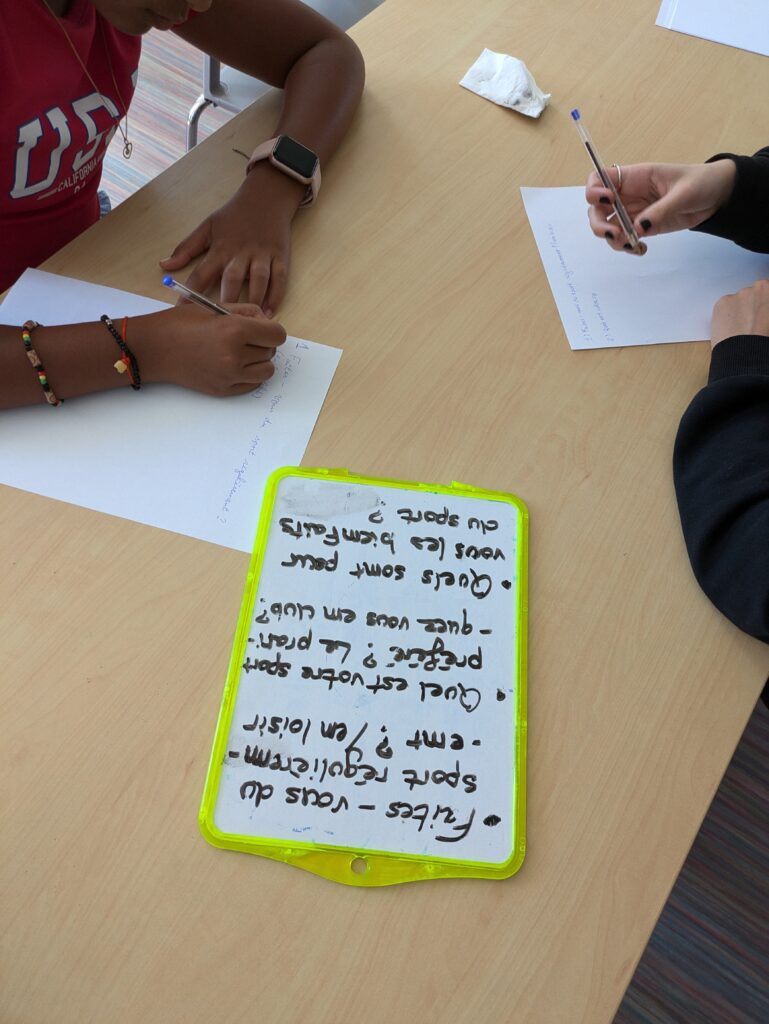 • Faites-vous du
sport régulièrem-
-emt ? / en loisir
• Quel est votre sport
préféré ? Le prati-
-quez vous em club ?
• Quels somt pour
vous les biemfaits
du sport ?
1 Faites-vous du sport régulièrement ?
US
CALIFORNIA